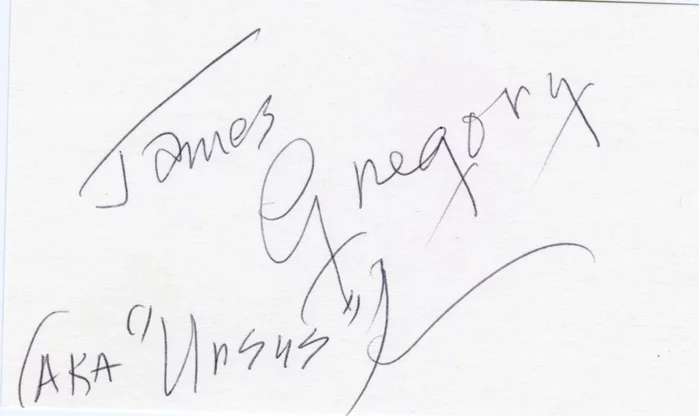 James
Gregory
(AKA "Ursus")